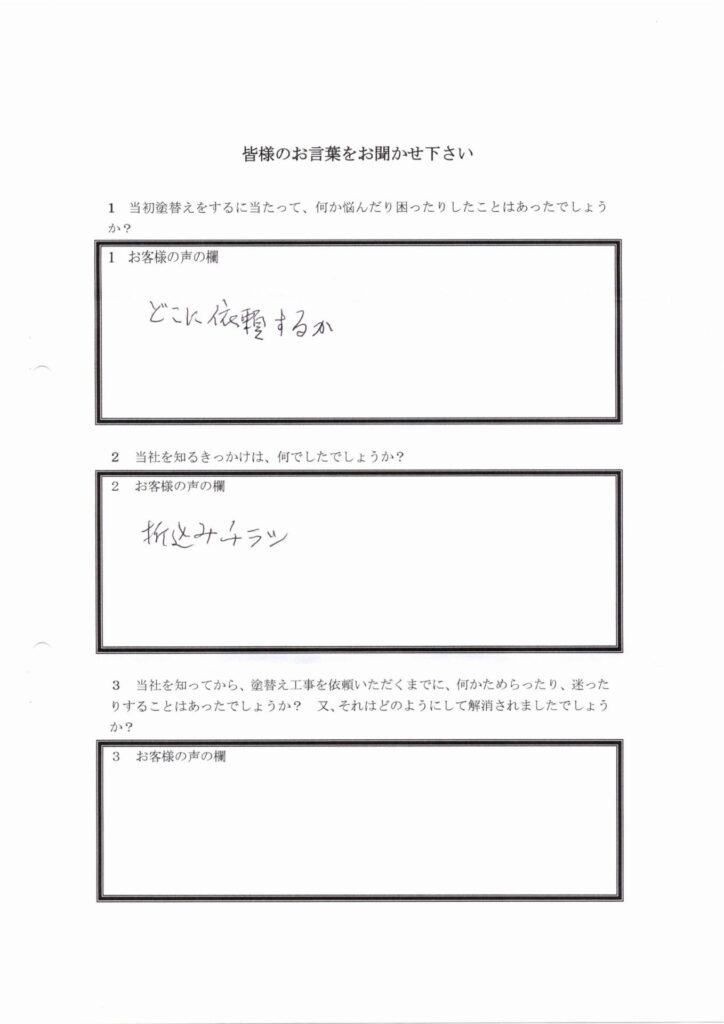 皆様のお言葉をお聞かせ下さい
1 当初塗替えをするに当たって、何か悩んだり困ったりしたことはあったでしょう
か？
1 お客様の声の欄
どこに依頼するか
2 当社を知るきっかけは、何でしたでしょうか？
2 お客様の声の欄
折込みチラシ
3 当社を知ってから、塗替え工事を依頼いただくまでに、何かためらったり、迷った
りすることはあったでしょうか？ 又、それはどのようにして解消されましたでしょう
か？
3 お客様の声の欄